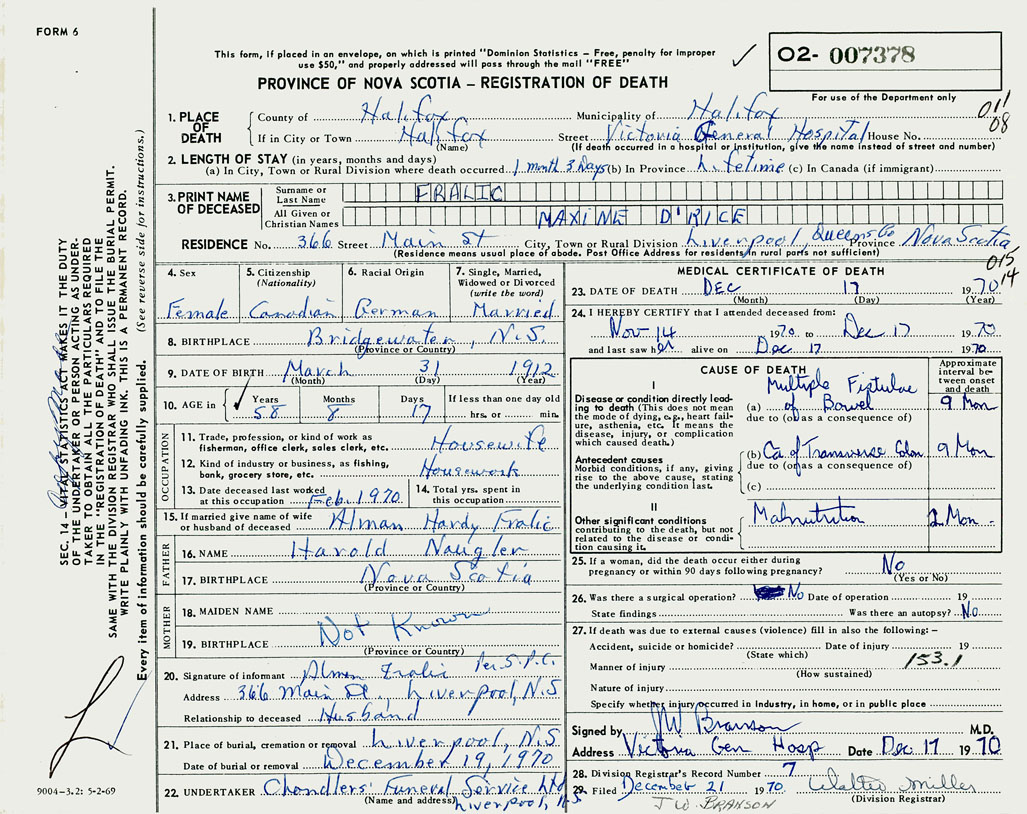 FORM 6
This form, if placed in an envelope, on which is printed "Dominion Statistics – Free, penalty for improper
use $50," and properly addressed will pass through the mail "FREE"
PROVINCE OF NOVA SCOTIA – REGISTRATION OF DEATH
02- 007378
For use of the Department only
011
08
1. PLACE OF DEATH
County of Halifax Municipality of Halifax
If in City or Town Halifax Street Victoria General Hospital House No.
(Name) (If death occurred in a hospital or institution, give the name instead of street and number)
2. LENGTH OF STAY (in years, months and days)
(a) In City, Town or Rural Division where death occurred 1 month 3 Days (b) In Province Lifetime (c) In Canada (if immigrant)
3. PRINT NAME OF DECEASED
Surname or Last Name FRALIC
All Given or Christian Names MAXINE D'RICE
RESIDENCE No. 366 Street Main St City, Town or Rural Division Liverpool, Queens Co Province Nova Scotia
(Residence means usual place of abode. Post Office Address for residents in rural parts not sufficient)
015
14
4. Sex
Female
5. Citizenship
(Nationality)
Canadian
6. Racial Origin
German
7. Single, Married,
Widowed or Divorced
(write the word)
Married
8. BIRTHPLACE Bridgewater, N.S
(Province or Country)
9. DATE OF BIRTH March 31 1912
(Month) (Day) (Year)
10. AGE in
Years Months Days If less than one day old
58 8 17 hrs. or min.
OCCUPATION
11. Trade, profession, or kind of work as
fisherman, office clerk, sales clerk, etc. Housewife
12. Kind of industry or business, as fishing,
bank, grocery store, etc. Housework
13. Date deceased last worked
at this occupation Feb. 1970
14. Total yrs. spent in
this occupation
15. If married give name of wife
or husband of deceased Alman Hardy Fralic
FATHER
16. NAME Harold Naugler
17. BIRTHPLACE Nova Scotia
(Province or Country)
MOTHER
18. MAIDEN NAME
Not Known
19. BIRTHPLACE
(Province or Country)
20. Signature of informant Alman Fralic Per S.P.C.
Address 366 Main St, Liverpool, N.S
Relationship to deceased Husband
21. Place of burial, cremation or removal Liverpool, N.S
Date of burial or removal December 19, 1970
22. UNDERTAKER Chandlers' Funeral Service Ltd
(Name and address) Liverpool, N.S
MEDICAL CERTIFICATE OF DEATH
23. DATE OF DEATH DEC 17 1970
(Month) (Day) (Year)
24. I HEREBY CERTIFY that I attended deceased from:
Nov 14 1970 to Dec. 17 1970
and last saw her alive on Dec 17 1970
CAUSE OF DEATH
Approximate interval between onset and death
I
Disease or condition directly leading to death (This does not mean the mode of dying, e.g., heart failure, asthenia, etc. It means the disease, injury, or complication which caused death.
(a) Multiple Fistulae of Bowel 9 Mon
due to (or as a consequence of)
Antecedent causes
Morbid conditions, if any, giving rise to the above cause, stating the underlying condition last.
(b) Ca of Transverse Colon 9 Mon
due to (or as a consequence of)
(c)
II
Other significant conditions
contributing to the death, but not related to the disease or condition causing it.
Malnutrition 2 Mon
25. If a woman, did the death occur either during
pregnancy or within 90 days following pregnancy? No
(Yes or No)
26. Was there a surgical operation? No Date of operation 19
State findings Was there an autopsy? No
27. If death was due to external causes (violence) fill in also the following: –
Accident, suicide or homicide? Date of injury 19
(State which)
Manner of injury 153.1
(How sustained)
Nature of injury
Specify whether injury occurred in Industry, in home, or in public place
Signed by JW Branson M.D.
Address Victoria Gen Hosp Date Dec 17 1970
28. Division Registrar's Record Number 7
29. Filed December 21 1970 Walter Miller
(Division Registrar)
J W BRANSON
SEC. 14 – VITAL STATISTICS ACT MAKES IT THE DUTY
OF THE UNDERTAKER OR PERSON ACTING AS UNDER-
TAKER TO OBTAIN ALL THE PARTICULARS REQUIRED
IN THE "REGISTRATION OF DEATH" AND TO FILE THE
SAME WITH THE DIVISION REGISTRAR WHO SHALL ISSUE THE BURIAL PERMIT.
WRITE PLAINLY WITH UNFADING INK. THIS IS A PERMANENT RECORD.
Every item of information should be carefully supplied. (See reverse side for instructions.)
9004-3.2: 5-2-69